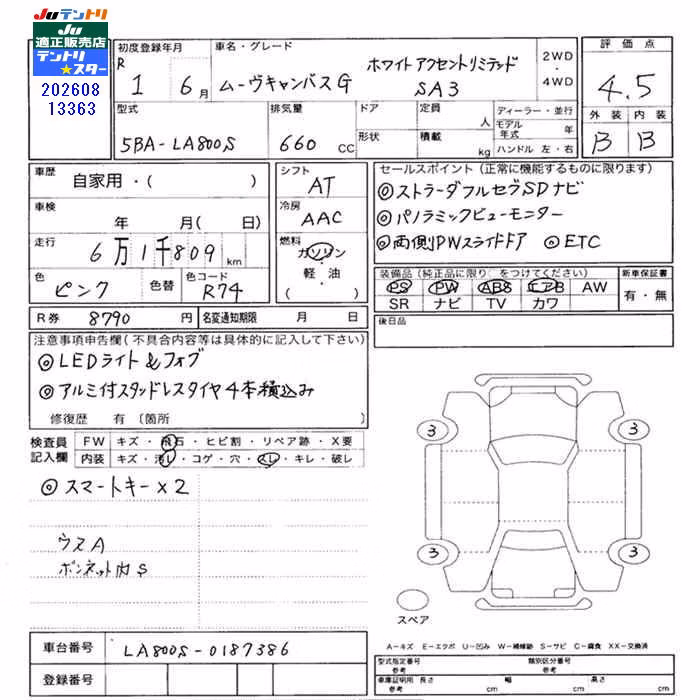 Juテントリ
Ju
適正販売店
テントリ
★スター
202608
13363
初度登録年月
R 1 6月
車名・グレード
ムーヴキャンバス G ホワイトアクセントリミテッド SA3
2WD
・
4WD
評価点
4.5
外装 内装
B B
型式
5BA-LA800S
排気量
660 CC
ドア
形状
定員 人
積載 kg
ディーラー・並行
モデル年式 年
ハンドル 左・右
車歴
自家用・( )
車検
年 月( 日)
走行
6万1千809km
色
ピンク
色替
色コード
R74
シフト
AT
冷房
AAC
燃料
ガソリン
・
軽・油
( )
セールスポイント(正常に機能するものに限ります)
◎ストラーダフルセグSDナビ
◎パノラミックビューモニター
◎両側PWスライドドア ◎ETC
装備品(純正品に限り○をつけてください)
PS PW ABS エアB AW
SR ナビ TV カワ
新車保証書
有・無
R券 8790 円
名変通知期限 月 日
後日品
注意事項申告欄(不具合内容等は具体的に記入して下さい)
◎LEDライト&フォグ
◎アルミ付スタッドレスタイヤ4本積込み
修復歴 有(箇所
検査員
記入欄
FW キズ・飛石・ヒビ割・リペア跡・X要
内装 キズ・汚レ・コゲ・穴・スレ・キレ・破レ
◎スマートキー×2
ウスA
ボンネット内S
3 3
3 3
スペア
車台番号 LA800S-0187386
登録番号
A−キズ E−エクボ U−凹み W−補修跡 S−サビ C−腐食 XX−交換済
型式指定番号 参考
類別区分番号 参考
車庫証明用 参考 長さ cm 幅 cm 高さ cm